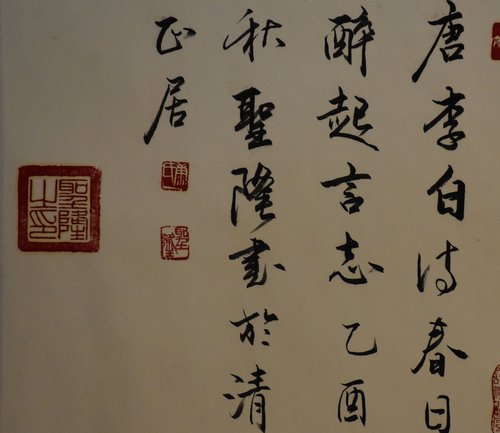 唐李白诗春日
醉起言志乙酉
秋聖隆書於清
正居
聖隆之印